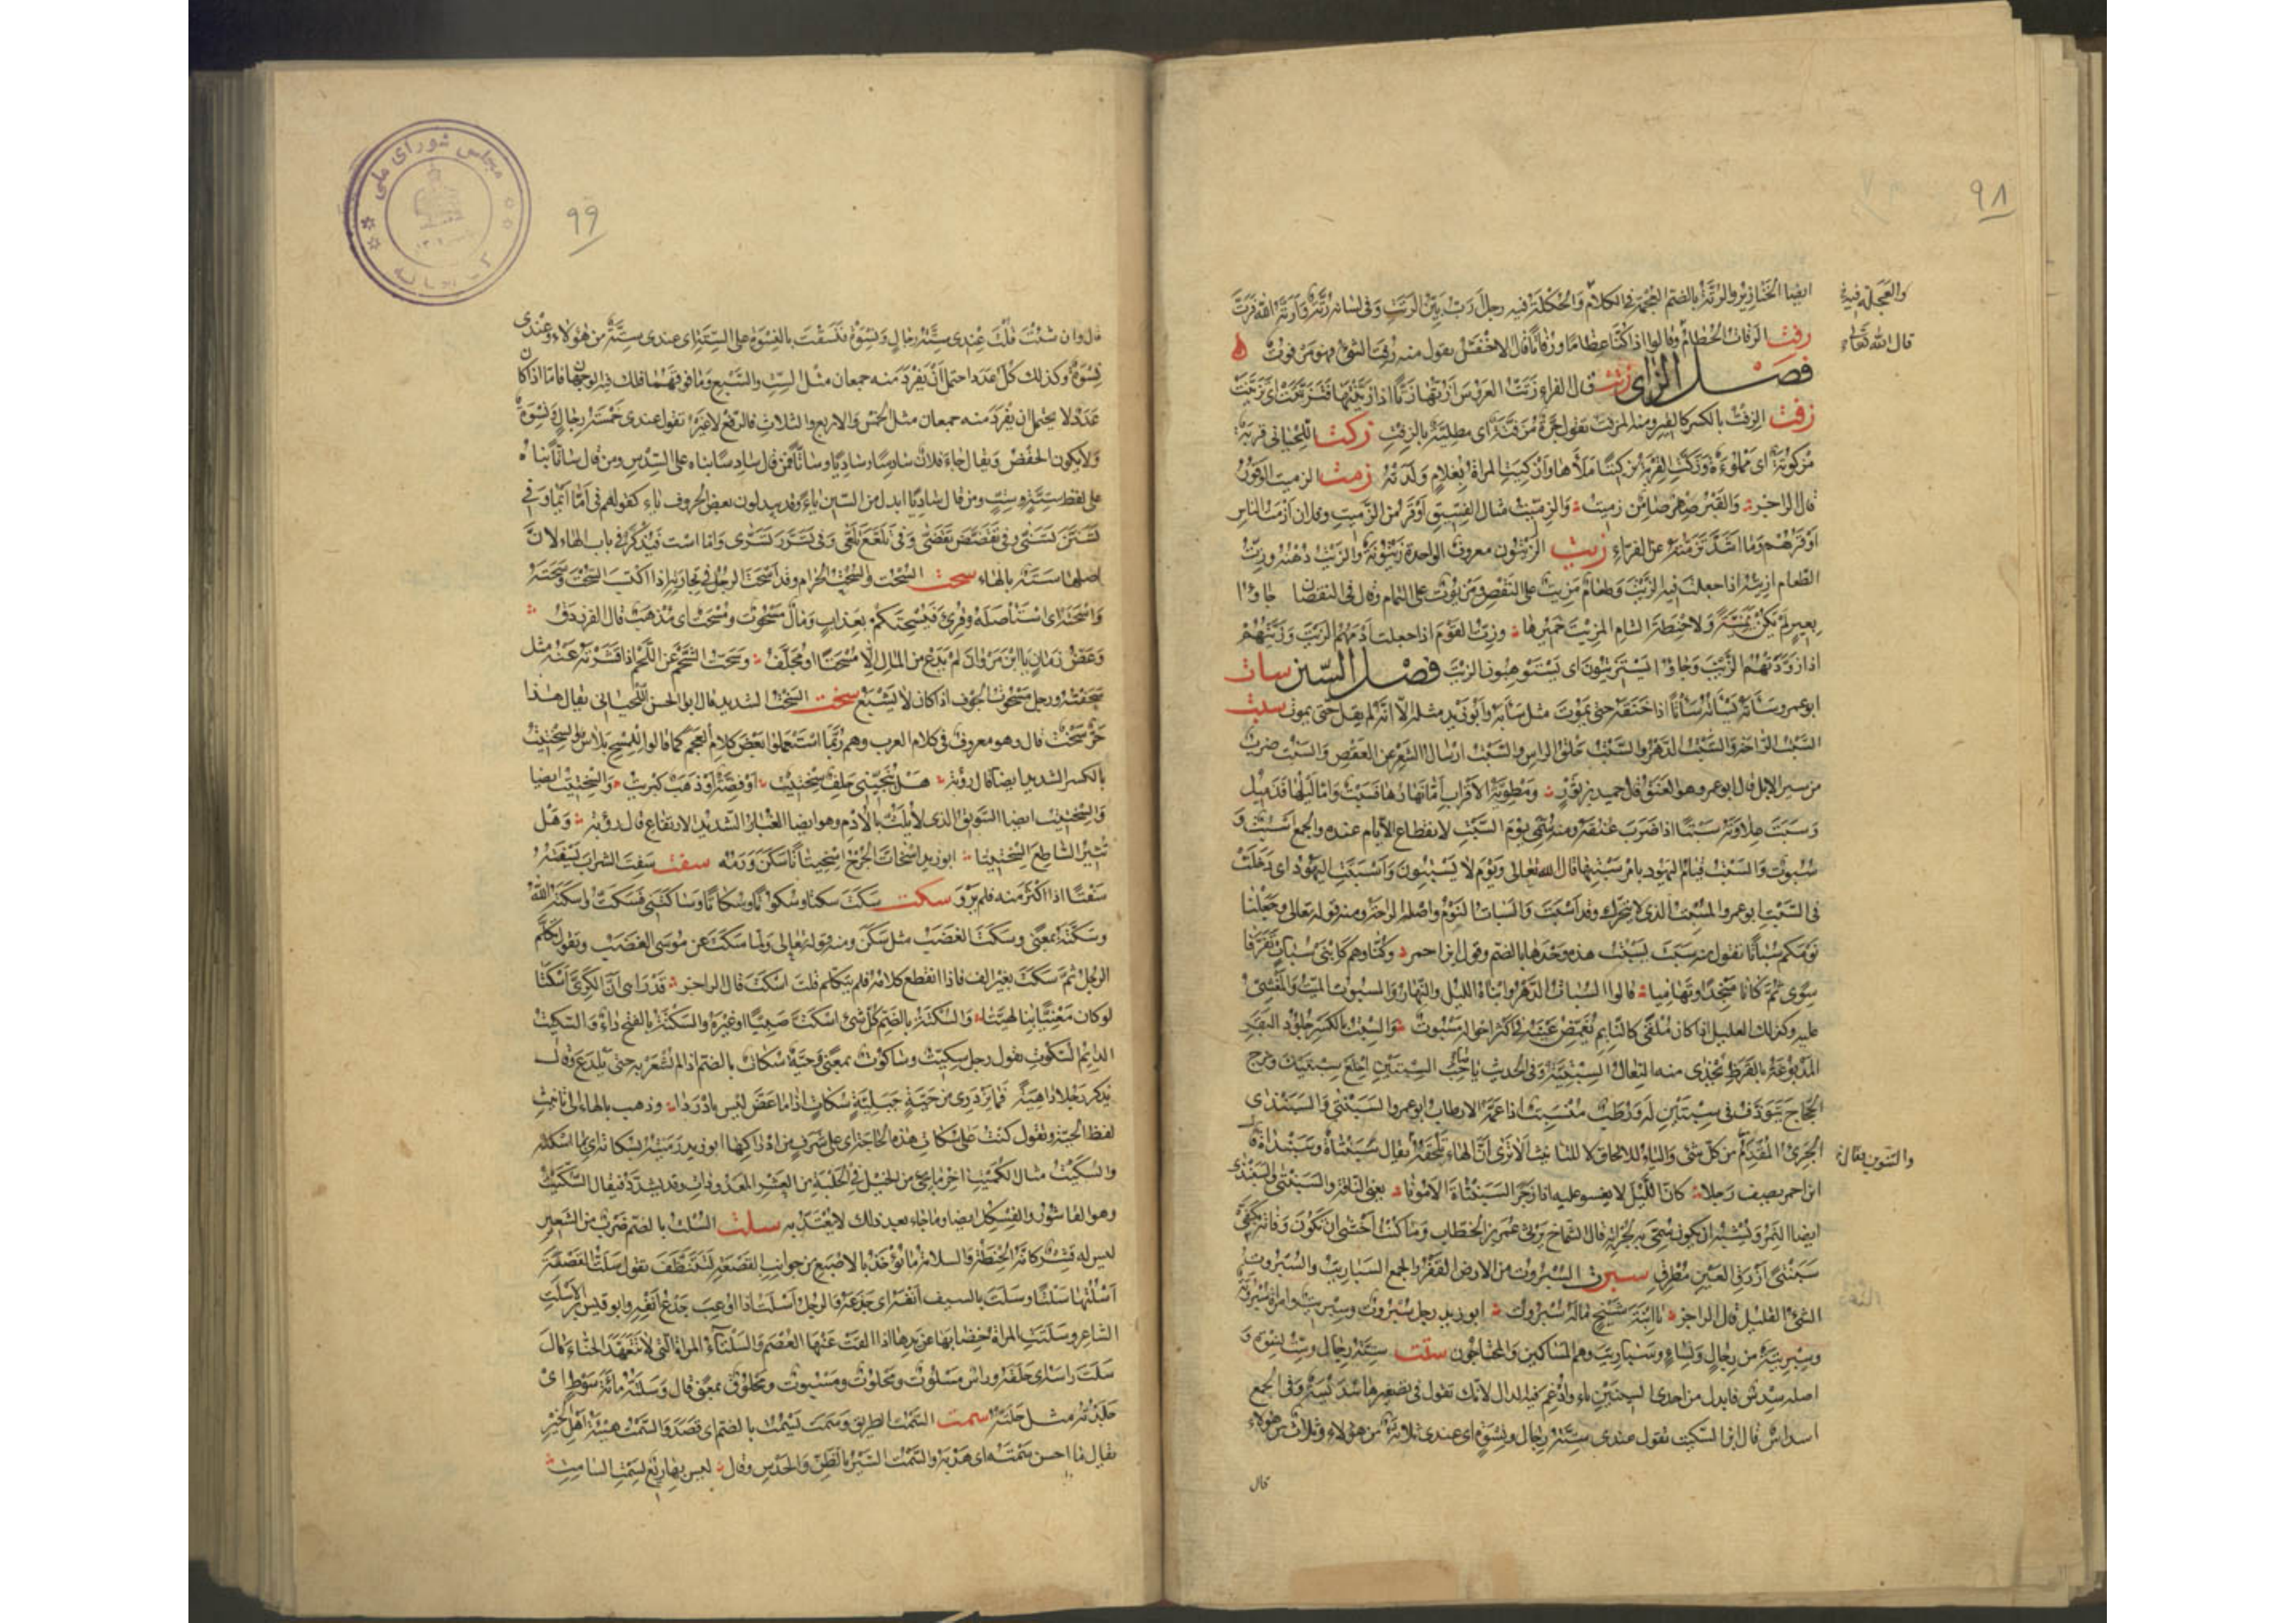 ٩٨
ايضا الخنازير والرُتَّةُ بالضم العُجْمَة في الكلام والحُكْلَة فيه رجلٌ اَرَتُّ بَيِّن الرَتَتِ وفي لسانه رُتَّةٌ واَرَتَّهُ اللّٰه فَرَتَّ
والعَجَلة فيه
رفت الرُفاتُ الحُطامُ وقالوا اذا كنا عظاما ورُفاتا قال الاخفش تقول منه رُفِتَ الشئ فهو مَرفوتٌ
قال الله تعالى
فصل الزاى زتت قال الفراء زَتَتُّ العروسَ اَزُتُّها زَتًّا اذا زَيَّنْتَها فَتَزَتَّتَتْ اى تَزَيَّنَتْ
زفت الزِفْتُ بالكسر كالقير ومنه المزفت تقول جَرَّةٌ مُزَفَّتَةٌ اى مطليّة بالزفت زكت اللحياني قربة
مَزكوتةٌ اى مملوءة وزَكَتُّ القربة زكتا مَلَأْتها وازْكَتَتِ المراة بغلام ولَدَتْهُ زمت الزميت الوَقورُ
قال الراجز والقَبْرُ صِهْرٌ ضامن زميت والزِمِّيتُ مثال الفِسِّيق اوقر من الزَميتِ وفلان ازمت الناس
اوقرهم وما اشدّ تَزَمُّتَه عن الفراء زيت الزَيْتون معروف الواحدة زَيْتُونةٌ والزيت دُهْنُه وزِتُّ
الطعام ازيته اذا جعلت فيه الزَيْتَ وطعام مَزِيتٌ على النقص ومَزيُوتٌ على التمام وقال في النقصان جاؤا
بعيرٍ لم تكن يَمَنِيَّةً ولا حِنطةَ الشام المزيتَ خميرها وزِتُّ القوم اذا جعلت اُدْمَهُم الزيتَ وزَيَّتُّهُم
اذا زوّدتهم الزيت وجاؤا يَسْتَزيتون اى يستوهبون الزيت فصل السين سات
ابو عمرو سَأَتَهُ يَسْأَتُهُ سَأْتًا اذا خنقه حتى يموت مثل سَأَبَهُ وابو زيد مثله الا انه لم يقل حتى يموت سبت
السَبْتُ الراحة والسَبْتُ الدَهْرُ والسَبْتُ حلق الراس والسَبْتُ ارسال الشعر عن العقص والسَبْتُ ضرب
من سير الابل قال ابو عمرو هو العَنَقُ قال حميد بن ثور ومَطْويّةُ الاقراب امّا نهارها فسَبْتٌ واما ليلها فذَميل
وسَبَتَ عِلاوَته سبتًا اذا ضرب عنقه ومنه سمّى يوم السبت لانقطاع الايام عنده والجمع اَسْبُت و
سُبُوت والسَبْتُ قيام اليهود بامر سَبْتِها قال الله تعالى ويوم لا يَسْبِتُون واَسْبَتَت اليهود اى دخلت
في السبت ابو عمرو المُسْبِتُ الذى لا يتحرّك وقد اَسْبَتَ والسُبات النوم واصله الراحة ومنه قوله تعالى وجعلنا
نومكم سباتا تقول منه سَبَتَ يَسْبُتُ هذه وحدها بالضم وقول ابن احمر وكنا وهم كابنى سُباتٍ تفرقا
سوى ثم كانا مُنْجِدًا وتهاميا قالوا السُبات الدَهْر وابناه الليل والنهار والمسبوت الميت والمغشيّ
عليه وكذلك العليل اذا كان مُلقًى كالنائم يُغَمِّضُ عَينيه في اكثر احواله مَسْبوت والسِبْتُ بالكسر جلود البقر
المدبوغة بالقرظ تُحْذى منه النعال السِبْتِيّة وفي الحديث يا صاحب السِبْتَيْن اخلع سِبْتَيْك وخرج
الحجاج يَتَوذَّف في سِبْتَيْن له ورُطَبٌ مُنْسَبِتٌ اذا عمّه الارطاب ابو عمرو السَبَنْتى والسَبَنْدى
الجرئ المُقْدِم من كل شئ والياء للالحاق لا للتانيث الا ترى انّ الهاء تلحقه يقال سَبَنْتاة وسَبَنْداة قال
والتنوين يقال
ابن احمر يصف رجلا كانّ الليل لا يغسو عليه اذا زجر السَبَنْتاة الامونا يعنى الناقة والسَبَنْتى والسَبَنْدى
ايضا النَمِر ويشبه ان يكون سُمّى به لجُرأته قال الشماخ يرثى عمر بن الخطاب وما كنت اخشى ان تكون وفاته بكفّى
سَبَنْتى ازرق العين مُطرِق سبرت السُبروت من الارض القفر والجمع السباريت والسُبْروت
الشئ القليل قال الراجز يا ابنة شيخ ماله سُبروت ابو زيد رجل سُبْروت وسِبْريت وامراة سُبروتة
وسِبْريتة من رجال ونساء سباريت وهم المساكين والمحتاجون ستت ستّة رجال وستّ نسوة و
اصله سِدْس فابدل من احدى السينين تاء وادغم فيه الدال لانّك تقول في تصغيرها سُدَيْسَة وفي الجمع
اسداس قال ابن السكيت تقول عندى ستة رجال ونسوة اى عندى ثلاثة من هؤلاء وثلاث من هؤلاء
قال
٩٩
مجلس شوراى ملى
قال وان شئت قلت عندى ستّة رجال ونسوةٌ فنسقت بالنسوة على الستّة اى عندى ستّة من هؤلاء وعندى
نسوة وكذلك كل عدد احتمل ان يفرد منه جمعان مثل الستّ والسبع وما فوقهما فلك فيه الوجهان فاما اذا كان
عدد لا يحتمل ان يفرد منه جمعان مثل الخمس والاربع والثلاث فالرفع لا غير تقول عندى خمسة رجال ونسوة
ولا يكون الخفض ويقال جاء فلان سادِسًا وساديًا وساتًّا فمن قال سادسا بناه على السدس ومن قال ساتّا بناه
على لفظ ستّة وستّ ومن قال ساديا ابدل من السين ياء وقد يبدلون بعض الحروف ياء كقولهم في امّا ايما وفي
تسنّن تسنّى وفي تقضّض تقضّى وفي تلعّع تلعّى وفي تسرّر تسرّى واما است فيذكر في باب الهاء لانّ
اصلها سَتَهٌ بالهاء سحت السُحْت والسُحُت الحرام وقد اَسْحَتَ الرجل في تجارته اذا اكتسب السُحْتَ وسَحَتَه
واَسْحَتَه اى استأصله وقرئ فيُسْحِتَكم بعذاب ومال مسحوت ومُسْحَت اى مُذْهَب قال الفرزدق
وعضُّ زمان يا ابن مروان لم يدع من المال الّا مُسْحَتًا او مُجَلَّف وسَحَتُّ الشحم عن اللحم اذا قشرته عنه مثل
سَحَفْتُه ورجل مسحوت الجوف اذا كان لا يشبع سخت السَخْتُ الشديد قال ابو الحسن اللحيانى يقال هذا
حَرٌّ سَخْتٌ قال وهو معروف في كلام العرب وهم ربّما استعملوا بعض كلام العجم كما قالوا للمِسْح بَلاس والسِخْتيت
بالكسر الشديد ايضا قال رؤبة هل يُنْجِيَنّى حَلِفٌ سِخْتيت او فِضّة او ذهب كبريت والسِختيت ايضا
والسِختيت ايضا السويق الذى لا يُلَتُّ بالادم وهو ايضا الغبار الشديد الارتفاع قال رؤبة وهل
تثير الساطع السختيتا ابو زيد اسخاتّ الجرح اسخيتاتا سكن ورمه سفت سَفِتَ الشراب يَسْفَتُه
سَفْتًا اذا اكثر منه فلم يَرْوَ سكت سَكَتَ سكتا وسُكوتا وسُكاتا وساكتنى فسَكَتُّ واسكته اللّٰه
وسكّته بمعنى وسكت الغضب مثل سكن ومنه قوله تعالى ولما سكت عن موسى الغضب وتقول تكلّم
الرجل ثم سكت بغير الف فاذا انقطع كلامه فلم يتكلم قلت اسكت قال الراجز قد رابنى ان الكَرِىّ اسكتا
لو كان مَعْنِيًّا بنا لهيّتا والسُكْتة بالضم كل شئ اسكتّ به صبيّا او غيره والسَكْتة بالفتح داء والسِكّيت
الدائم السكوت تقول رجل سكّيت وساكوت بمعنى وحيّة سُكات بالضم اذا لم يُشْعَر به حتى يلدغ وقال
يذكر رجلا داهية فما تزدرى من حيّة جبليّة سُكات اذا ما عضّ ليس بادردا وذهب بالهاء الى تانيث
لفظ الحيّة وتقول كنت على سُكات هذه الحاجة اى على شَرَف من ادراكها ابو زيد رميته بسُكاته اى بما اسكته
والسُكَيْت مثال الكُمَيْت اخر ما يجئ من الخيل في الحلبة من العشر المعدودات وقد يشدّد فيقال السُكَّيْت
وهو القاشور والفِسْكِل ايضا وما جاء بعد ذلك لا يُعتدّ به سلت السُلْت بالضم ضرب من الشعير
ليس له قشر كانّه الحنطة والسلاتة ما يؤخذ بالاصبع من جوانب القصعة لتتنظّف تقول سَلَتُّ القصعة
اَسْلُتُها سَلْتًا وسَلَتَ بالسيف انفه اى جدعه والرجل اسلت اذا اُوعِبَ جدع انفه وابو قيس بن الاسلت
الشاعر وسلتت المراة خضابها عن يدها اذا القت عنها العُصْم والسَلْتاء المراة التى لا تتعهّد الحنّاء قال
سَلَتَ راسه اى حلقه وراس مسلوت ومحلوت ومسبوت ومحلوق بمعنى قال وسلته مائة سوط اى
جلدته مثل حلته سمت السَمْت الطريق وسَمَتَ يَسْمُت بالضم اى قصد والسَمْت هيئة اهل الخير
يقال ما احسن سَمْته اى هديه والسمت السير بالظنّ والحدس وقال ليس بها ريع لسمت السامت